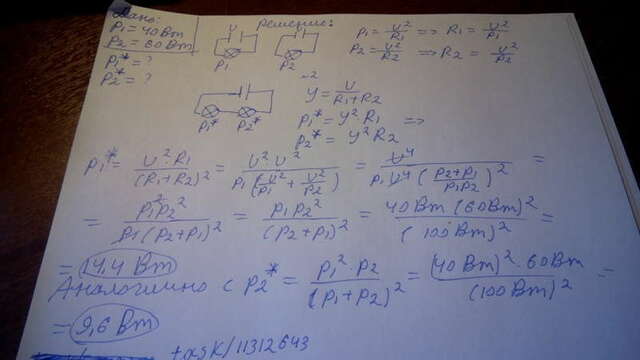 Дано: Решение:
P1 = 40 Вт
P2 = 60 Вт
P1* = ?
P2* = ?
U U
P1 P2
P1 = U²/R1 => R1 = U²/P1
P2 = U²/R2 => R2 = U²/P2
P1* P2*
У = U/(R1+R2)
P1* = У² R1 =>
P2* = У² R2
P1* = U² R1/(R1+R2)² = U² · U²/P1 (U²/P1 + U²/P2)² = U⁴/P1 U⁴ ((P2+P1)/P1P2)² =
= P1² P2²/P1 (P2+P1)² = P1 P2²/(P2+P1)² = 40 Вт (60 Вт)²/(100 Вт)² =
= 14,4 Вт
Аналогично с P2* = P1² · P2/(P1+P2)² = (40 Вт)² · 60 Вт/(100 Вт)² =
= 9,6 Вт
task/11312643